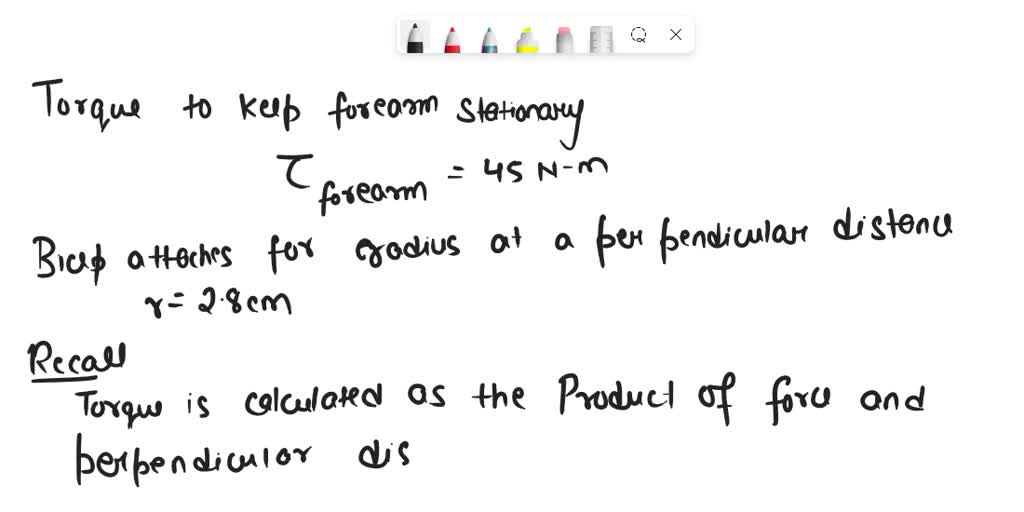 Torque to keep forearm stationary
τ forearm = 45 N-m
Bicep attaches for radius at a perpendicular distance
r = 2.8cm
Recall
Torque is calculated as the Product of force and
perpendicular dis